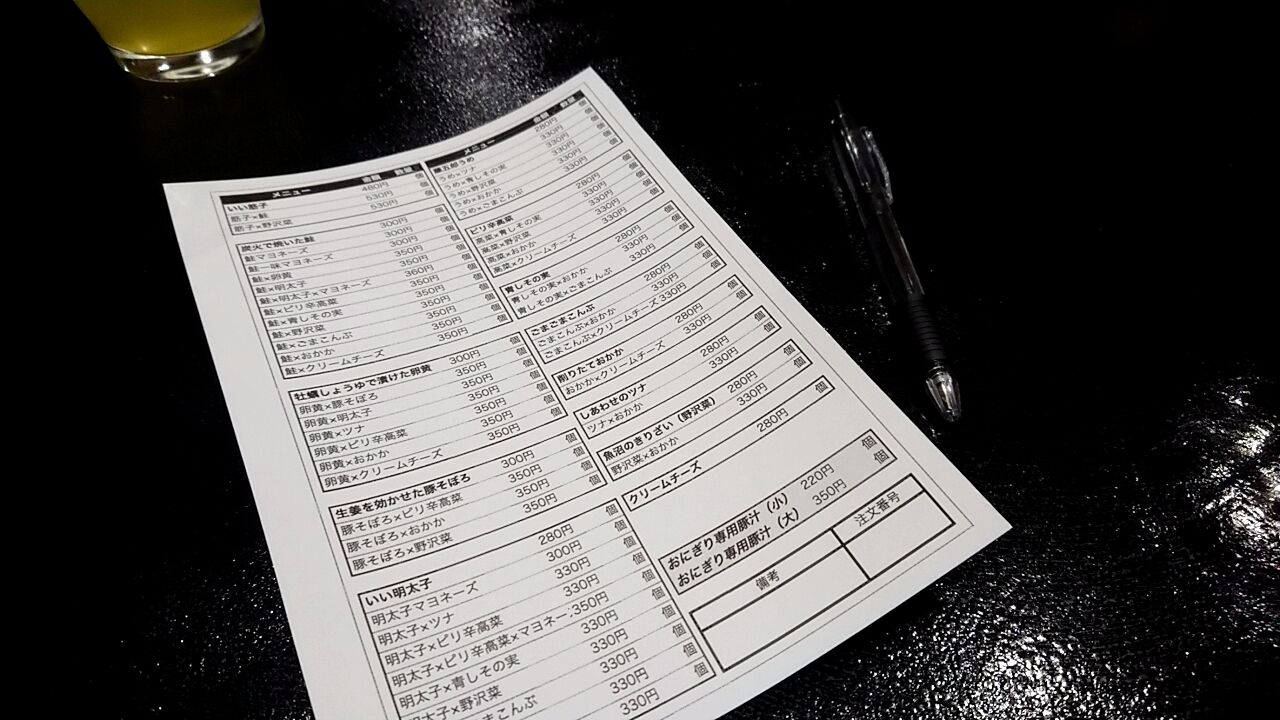 メニュー 金額 数量
いい筋子 480円 個
筋子×鮭 530円 個
筋子×野沢菜 530円 個
炭火で焼いた鮭 300円 個
鮭マヨネーズ 300円 個
鮭一味マヨネーズ 300円 個
鮭×卵黄 350円 個
鮭×明太子 350円 個
鮭×明太子×マヨネーズ 360円 個
鮭×ピリ辛高菜 350円 個
鮭×青しその実 350円 個
鮭×野沢菜 350円 個
鮭×ごまこんぶ 350円 個
鮭×おかか 350円 個
鮭×クリームチーズ 350円 個
牡蠣しょうゆで漬けた卵黄 300円 個
卵黄×豚そぼろ 350円 個
卵黄×明太子 350円 個
卵黄×ツナ 350円 個
卵黄×ピリ辛高菜 350円 個
卵黄×おかか 350円 個
卵黄×クリームチーズ 350円 個
生姜を効かせた豚そぼろ 300円 個
豚そぼろ×ピリ辛高菜 350円 個
豚そぼろ×おかか 350円 個
豚そぼろ×野沢菜 350円 個
いい明太子 280円 個
明太子マヨネーズ 300円 個
明太子×ツナ 330円 個
明太子×ピリ辛高菜 330円 個
明太子×ピリ辛高菜×マヨネー. 350円 個
明太子×青しその実 330円 個
明太子×野沢菜 330円 個
ごまこんぶ 330円 個
330円
メニュー 金額 数量
うめ 280円 個
うめ×ツナ 330円 個
うめ×青しその実 330円 個
うめ×野沢菜 330円 個
うめ×おかか 330円 個
うめ×ごまこんぶ 330円 個
ピリ辛高菜 280円 個
高菜×青しその実 330円 個
高菜×野沢菜 330円 個
高菜×おかか 330円 個
高菜×クリームチーズ 330円 個
青しその実 280円 個
青しその実×おかか 330円 個
青しその実×ごまこんぶ 330円 個
ごまごまこんぶ 280円 個
ごまこんぶ×おかか 330円 個
ごまこんぶ×クリームチーズ 330円 個
削りたておかか 280円 個
おかか×クリームチーズ 330円 個
しあわせのツナ 280円 個
ツナ×おかか 330円 個
魚沼のきりざい（野沢菜） 280円 個
野沢菜×おかか 330円 個
クリームチーズ 280円 個
おにぎり専用豚汁（小） 220円 個
おにぎり専用豚汁（大） 350円 個
備考 注文番号